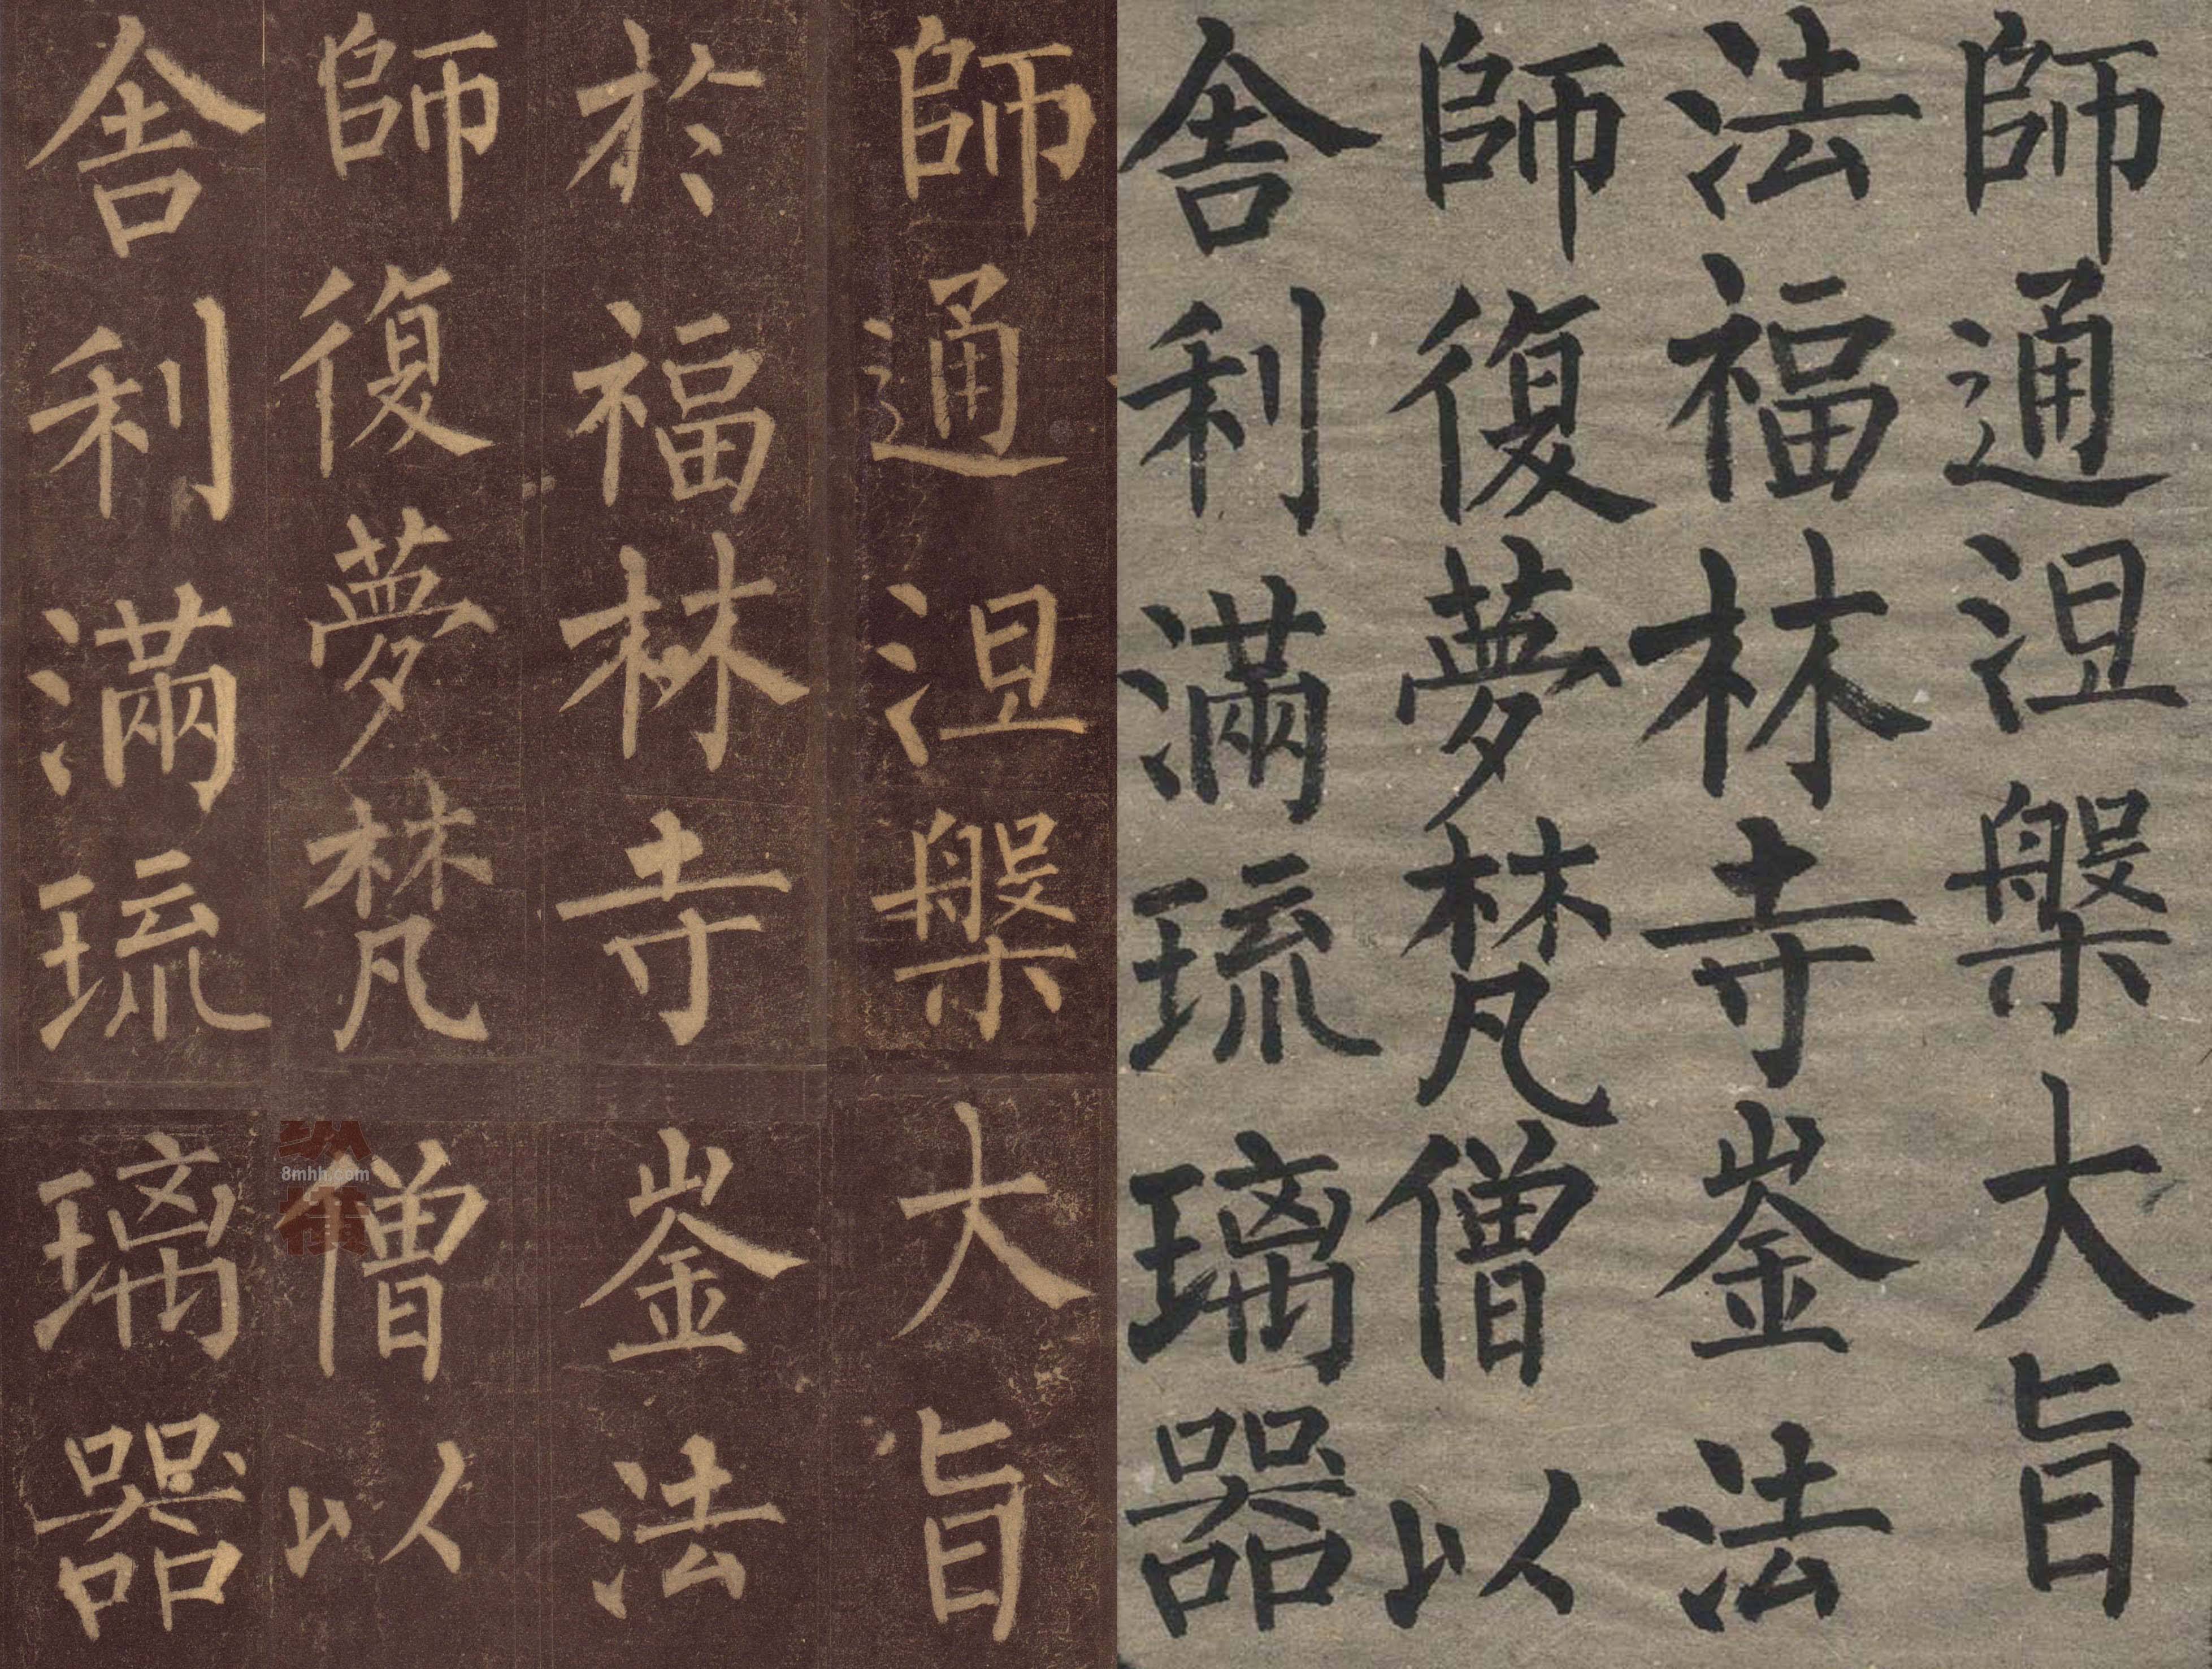 師通涅槃大旨
於福林寺崟法
師復夢梵僧以
舍利滿琉璃器
師通涅槃大旨
法福林寺崟法
師復夢梵僧以
舍利滿琉璃器
纵横
8mhh.com